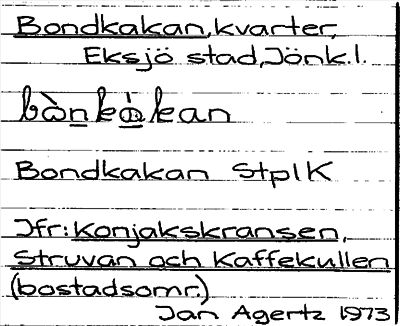 Bondkakan, kvarter,
Eksjö stad, Jönk.l.
bònkákan
Bondkakan StplK
Jfr: Konjakskransen,
Struvan och Kaffekullen
(bostadsomr.)
Jan Agertz 1973